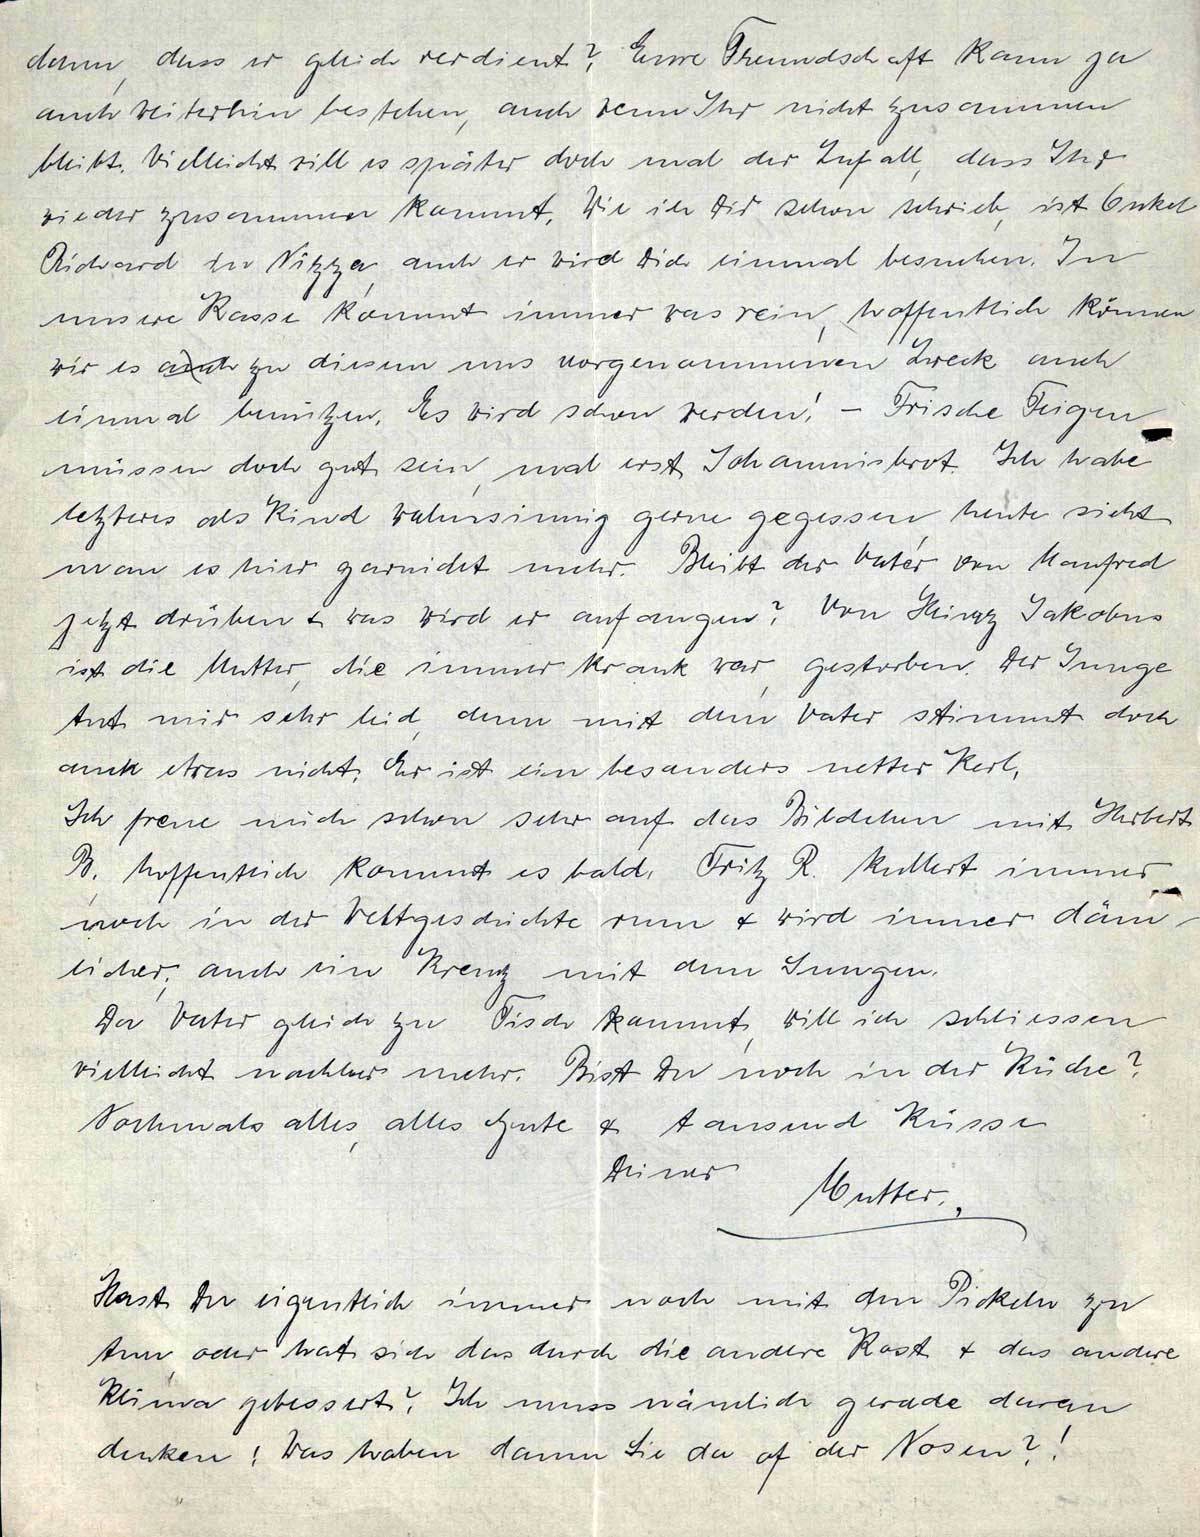 denn, dass er gleich verdient? Eure Freundschaft kann ja
auch weiterhin bestehen, auch wenn Ihr nicht zusammen
bleibt. Vielleicht will es später doch mal der Zufall, dass Ihr
wieder zusammen kommt. Wie ich Dir schon schrieb, ist Onkel
Richard in Nizza, auch er wird Dich einmal besuchen. In
unsere Kasse kommt immer was rein, hoffentlich können
wir es auch zu diesem uns vorgenommenen Zweck auch
einmal benützen. Es wird schon werden! – Frische Feigen
müssen doch gut sein, und erst Johannisbrot. Ich habe
letzteres als Kind wahnsinnig gerne gegessen, heute sieht
man es hier garnicht mehr. Bleibt der Vater von Manfred
jetzt drüben & was wird er anfangen? Von Heinz Jakobus
ist die Mutter, die immer krank war, gestorben. Der Junge
tut mir sehr leid, denn mit dem Vater stimmt doch
auch etwas nicht. Er ist ein besonders netter Kerl.
Ich freue mich schon sehr auf das Bildchen mit Herbert
B. hoffentlich kommt es bald. Fritz R. kullert immer
noch in der Weltgeschichte rum & wird immer däm-
licher, auch ein Kreuz mit dem Jungen.
Da Vater gleich zu Tisch kommt, will ich schliessen
vielleicht nachher mehr. Bist Du noch in der Küche?
Nochmals alles, alles Gute & tausend Küsse
Deiner
Mutter.
Hast Du eigentlich immer noch mit den Pickeln zu
tun, oder hat sich das durch die andere Kost & das andere
Klima gebessert? Ich muss nämlich gerade daran
denken! Was haben denn Sie da of der Nosen?!